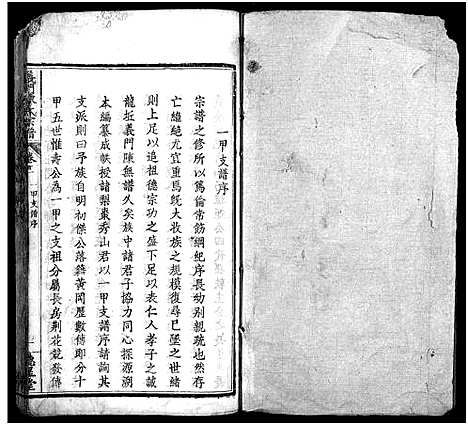 一甲支譜序
宗譜之修所以篤倫常飭綱紀序長幼別親疏也然存
亡繼絕尤宜重焉統大收族之規模復尋已墜之世緒
則上足以追祖德宗功之盛下足以表仁人孝子之誠
龍坵義門陳無譜久矣族中諸君子協力同心探源溯
本編纂成帙授諸梨棗秀山君以一甲支譜序請詢其
支派則曰予族自明初傑公落籍黃岡歷數傳即分十
甲五世惟壽公為一甲之支祖分屬長房荆花競發傳
義門陳氏宗譜
卷首
一甲支譜序